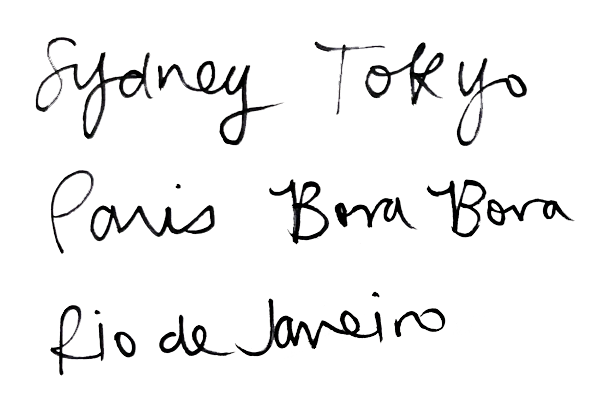 Sydney Tokyo
Paris Bora Bora
Rio de Janeiro